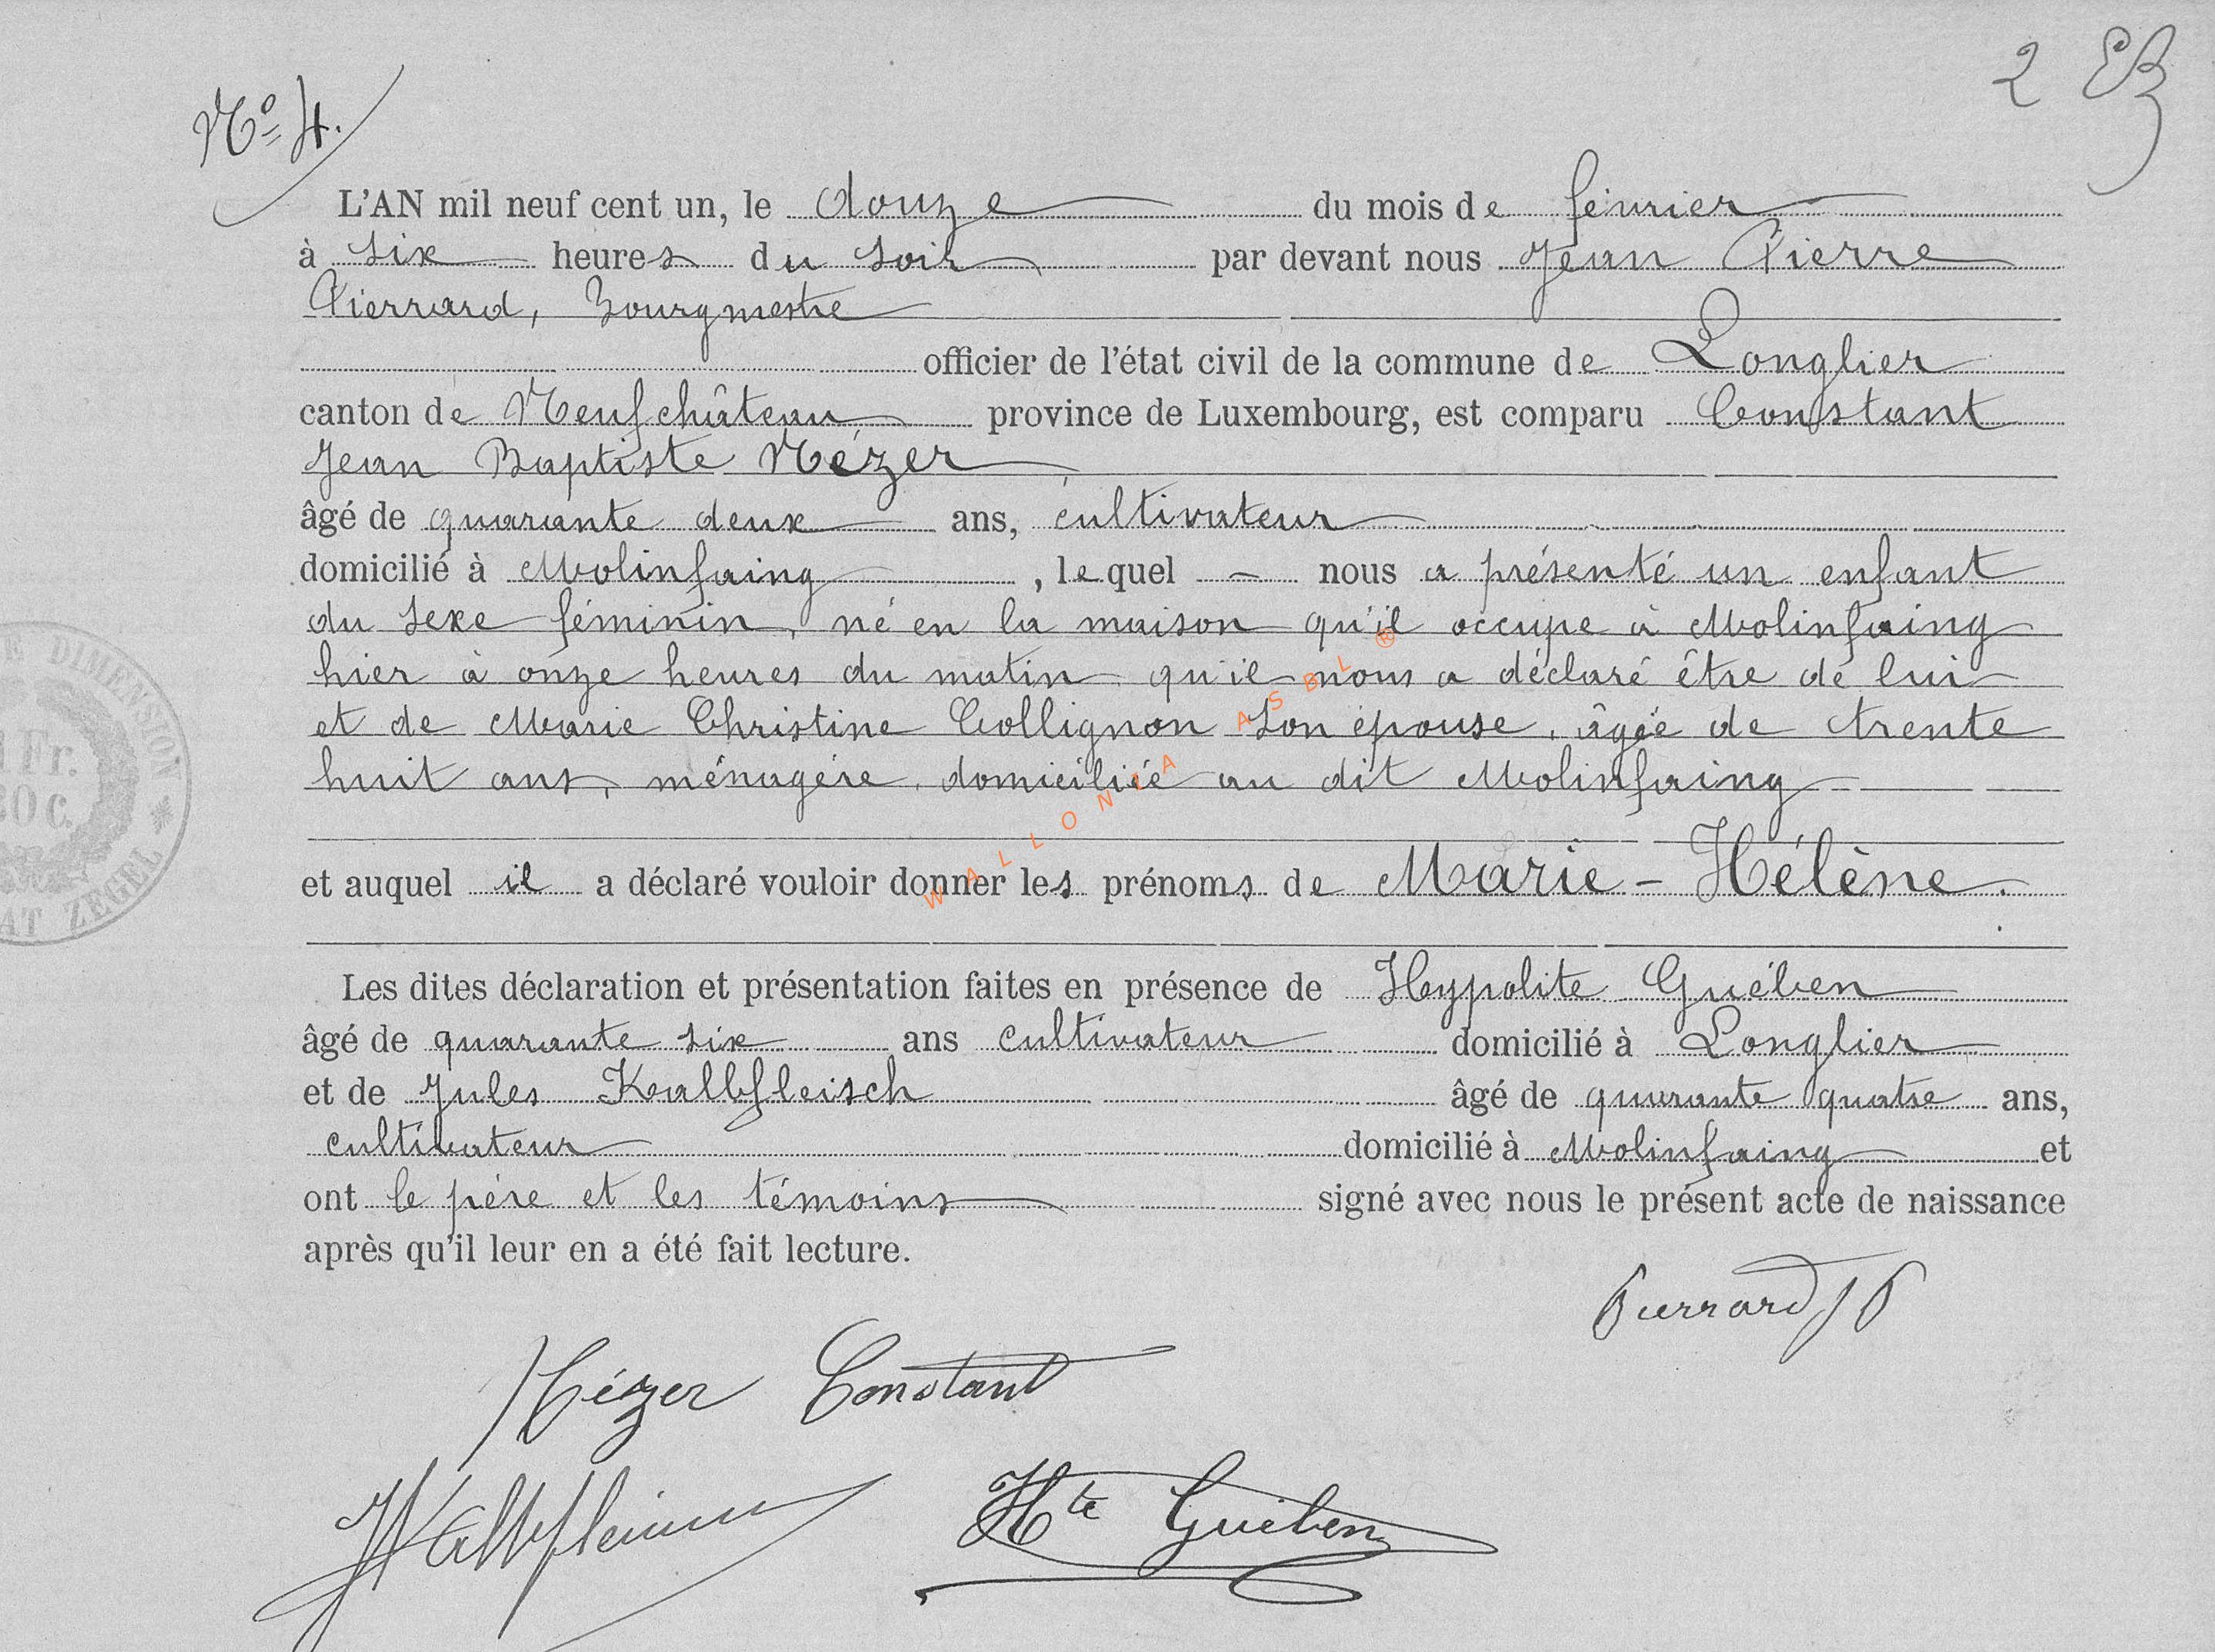 2 EB
Nº 4.
L'AN mil neuf cent un, le douze du mois de février
à six heures du soir par devant nous Jean Pierre
Pierrard, Bourgmestre
officier de l'état civil de la commune de Longlier
canton de Neufchâteau province de Luxembourg, est comparu Constant
Jean Baptiste Nézer
âgé de quarante deux ans, cultivateur
domicilié à Molinfaing , lequel - nous a présenté un enfant
du sexe féminin, né en la maison qu'il occupe à Molinfaing
hier à onze heures du matin qu'il nous a déclaré être de lui
et de Marie Christine Collignon son épouse, âgée de trente
huit ans, ménagère, domiciliée au dit Molinfaing
et auquel il a déclaré vouloir donner les prénoms de Marie-Hélène.
Les dites déclaration et présentation faites en présence de Hypolite Guében
âgé de quarante six ans cultivateur domicilié à Longlier
et de Jules Kalbfleisch âgé de quarante quatre ans,
cultivateur domicilié à Molinfaing et
ont le père et les témoins signé avec nous le présent acte de naissance
après qu'il leur en a été fait lecture.
Pierrard JP
Nézer Constant
Hte Guében
DIMENSION
1 Fr.
30 c.
ZEGEL
WALLONIA ASBL ®